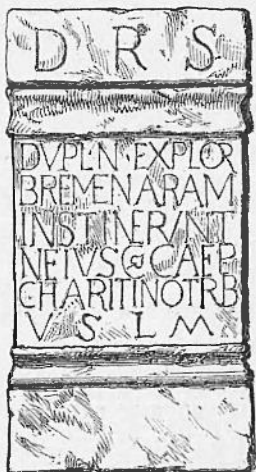 D R S
DVPL·N·EXPLOR
BREMENARAM
INSTINERVNT
NEIVS C CAEP
CHARITINOTRB
V S L M